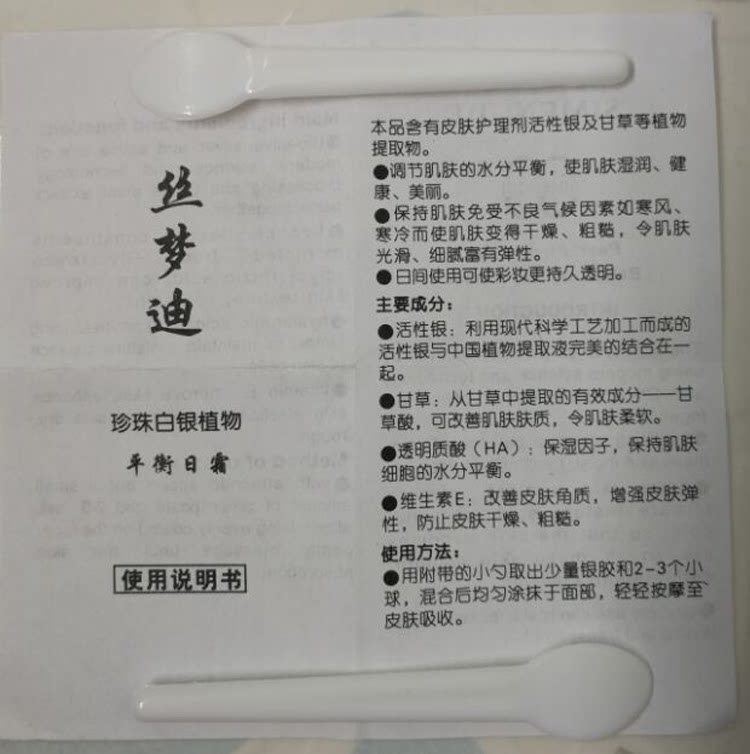 丝梦迪
珍珠白银植物
平衡日霜
使用说明书
本品含有皮肤护理剂活性银及甘草等植物
提取物。
●调节肌肤的水分平衡，使肌肤湿润、健
康、美丽。
●保持肌肤免受不良气候因素如寒风、
寒冷而使肌肤变得干燥、粗糙，令肌肤
光滑、细腻富有弹性。
●日间使用可使彩妆更持久透明。
主要成分：
●活性银：利用现代科学工艺加工而成的
活性银与中国植物提取液完美的结合在一
起。
●甘草：从甘草中提取的有效成分——甘
草酸，可改善肌肤肤质，令肌肤柔软。
●透明质酸（HA）：保湿因子，保持肌肤
细胞的水分平衡。
●维生素E：改善皮肤角质，增强皮肤弹
性，防止皮肤干燥、粗糙。
使用方法：
●用附带的小勺取出少量银胶和2-3个小
球，混合后均匀涂抹于面部，轻轻按摩至
皮肤吸收。